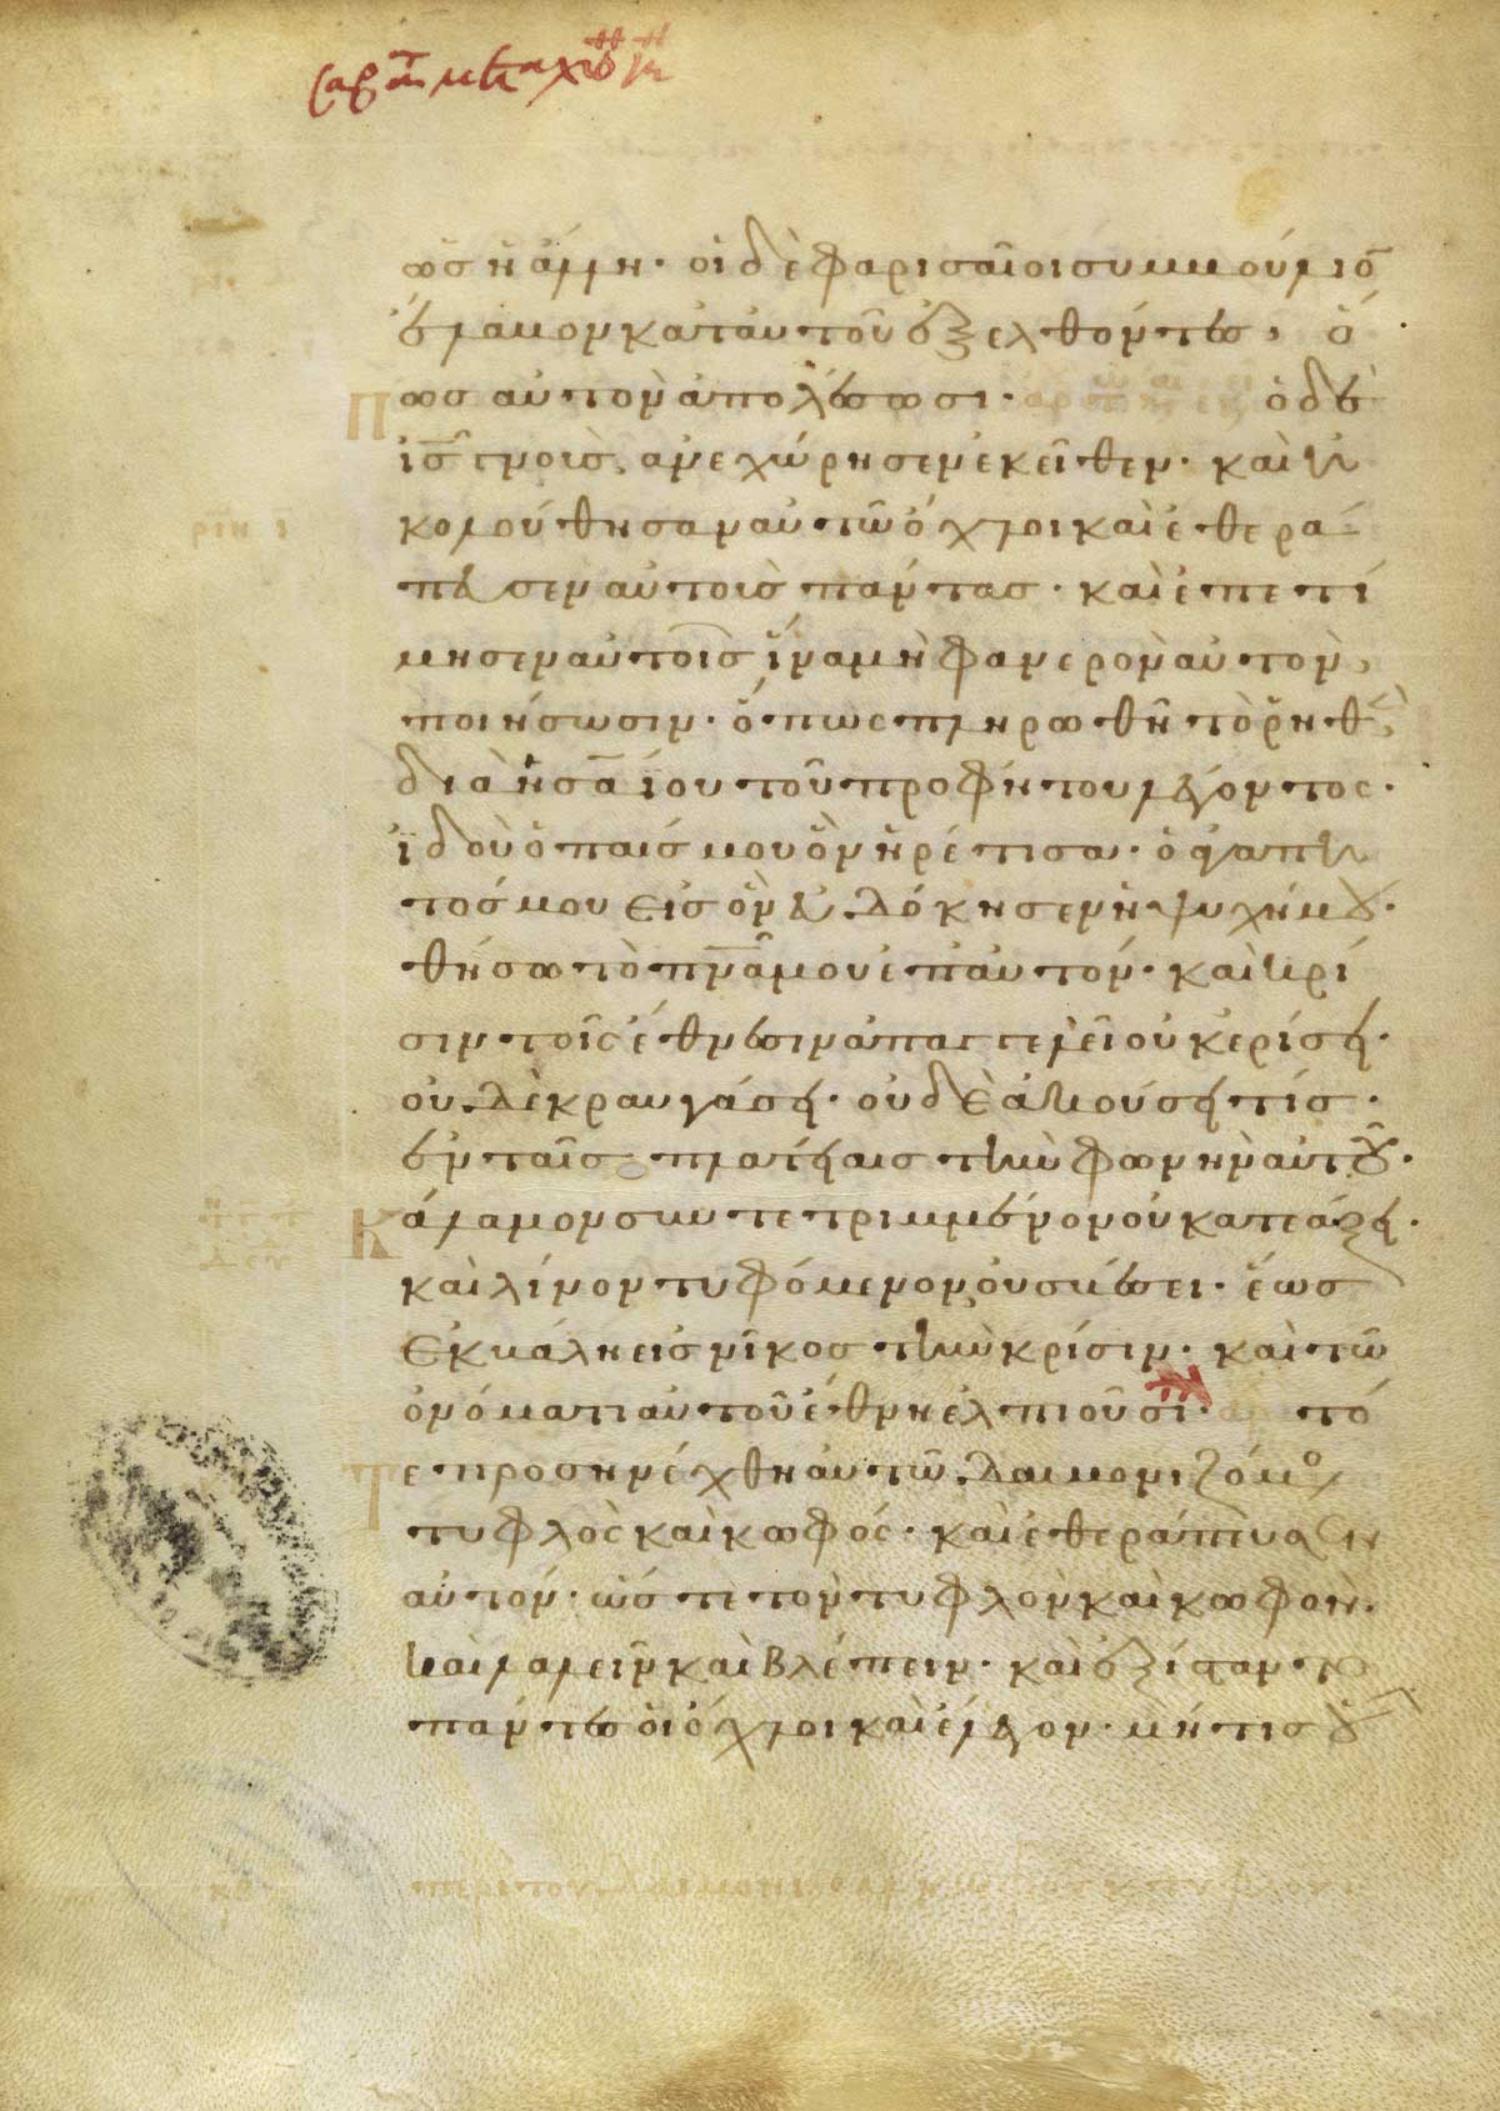 ὡς ἡ ἄλλη · οἱ δὲ φαρισαῖοι συμβούλιο̅
ἔλαβον κατ αὐτοῦ ἐξελθόντες, ὅ
Π ως αὐτὸν ἀπολέσωσι · ὁ δὲ
ι̅ς̅ γνοὺς, ἀνεχώρησεν ἐκεῖθεν · καὶ ἠ
κολούθησαν αὐτῶ ὄχλοι καὶ ἐθερά
πευσεν αὐτοὺς πάντας · καὶ ἐπετί
μησεν αὐτοῖς ἵνα μὴ φανερὸν αὐτὸν,
ποιήσωσιν · ὅπως πληρωθῆ τὸ ῥηθὲν
διὰ ἡσαΐου τοῦ προφήτου λέγοντος ·
ἰδοὺ ὁ παῖς μου ὃν ἡρέτισα · ὁ ἀγαπη
τός μου εἰς ὃν εὐδόκησεν ἡ ψυχή μου ·
θήσω τὸ π̅ν̅α̅ μου ἐπ αὐτόν · καὶ κρί
σιν τοῖς ἔθνεσιν ἀπαγγελεῖ οὐκ ἐρίσει ·
οὐδὲ κραυγάσει · οὐδὲ ἀκούσει τίς ·
ἐν ταῖς πλατείαις τὴν φωνὴν αὐτοῦ ·
Κ άλαμον συντετριμμένον οὐ κατεάξει ·
καὶ λίνον τυφόμενον οὐ σβέσει · ἕως
ἐκβάλη εἰς νῖκος τὴν κρίσιν · καὶ τῶ
ὀνόματι αὐτοῦ ἔθνη ἐλπιοῦσι · τό
Τ ε προσηνέχθη αὐτῶ δαιμονιζόμ̅ο̅
τυφλὸς καὶ κωφός · καὶ ἐθεράπευσεν
αὐτόν · ὥστε τὸν τυφλὸν καὶ κωφὸν ·
καὶ λαλεῖν καὶ βλέπειν · καὶ ἐξίσταντο
πάντες οἱ ὄχλοι καὶ ἔλεγον · μήτι οὗ